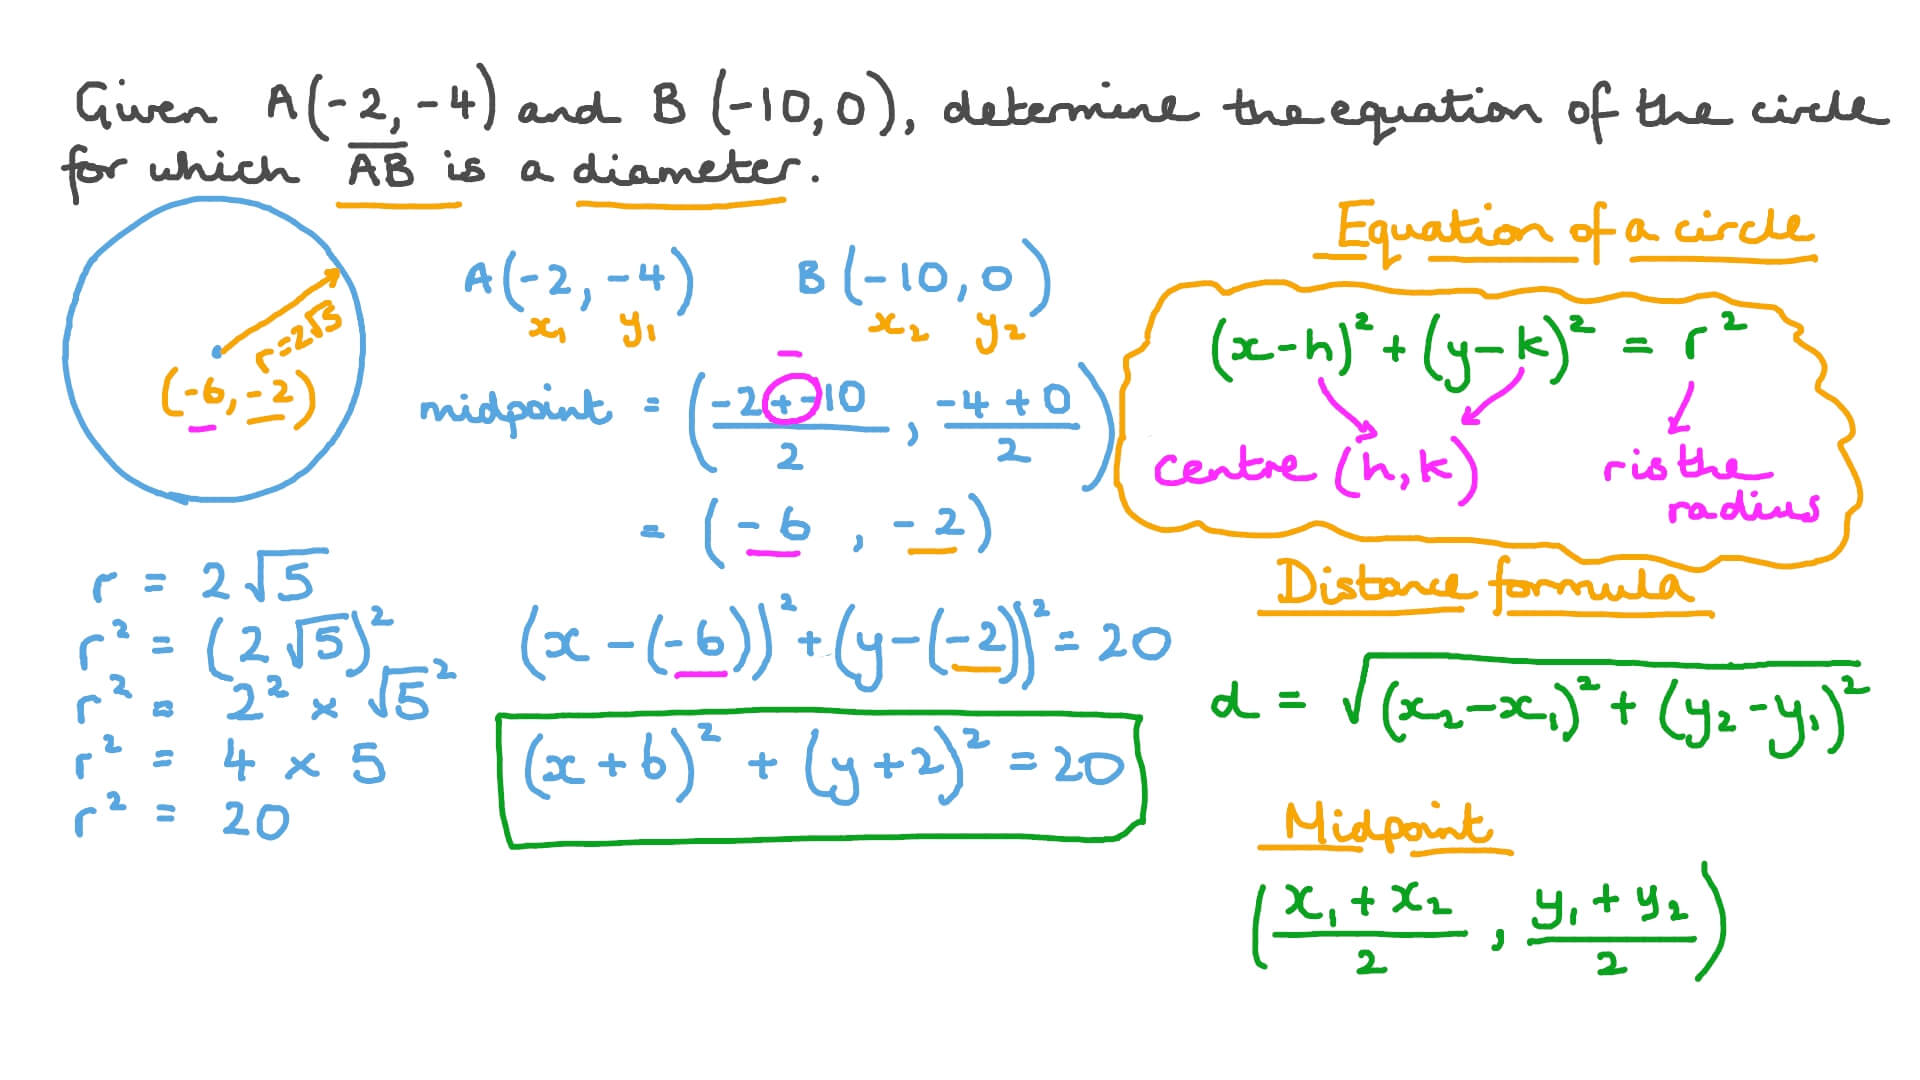 Given A(-2, -4) and B (-10, 0), determine the equation of the circle
for which A̅B̅ is a diameter.
r = 2√5
(-6, -2)
A(-2, -4) B(-10, 0)
x₁ y₁ x₂ y₂
−
midpoint = ((-2 + -10)/2, (-4 + 0)/2)
= (-6, -2)
r = 2√5
r² = (2√5)²
r² = 2² × √5²
r² = 4 × 5
r² = 20
(x - (-6))² + (y - (-2))² = 20
(x + 6)² + (y + 2)² = 20
Equation of a circle
(x - h)² + (y - k)² = r²
centre (h, k)
r is the
radius
Distance formula
d = √((x₂ - x₁)² + (y₂ - y₁)²)
Midpoint
((x₁ + x₂)/2, (y₁ + y₂)/2)